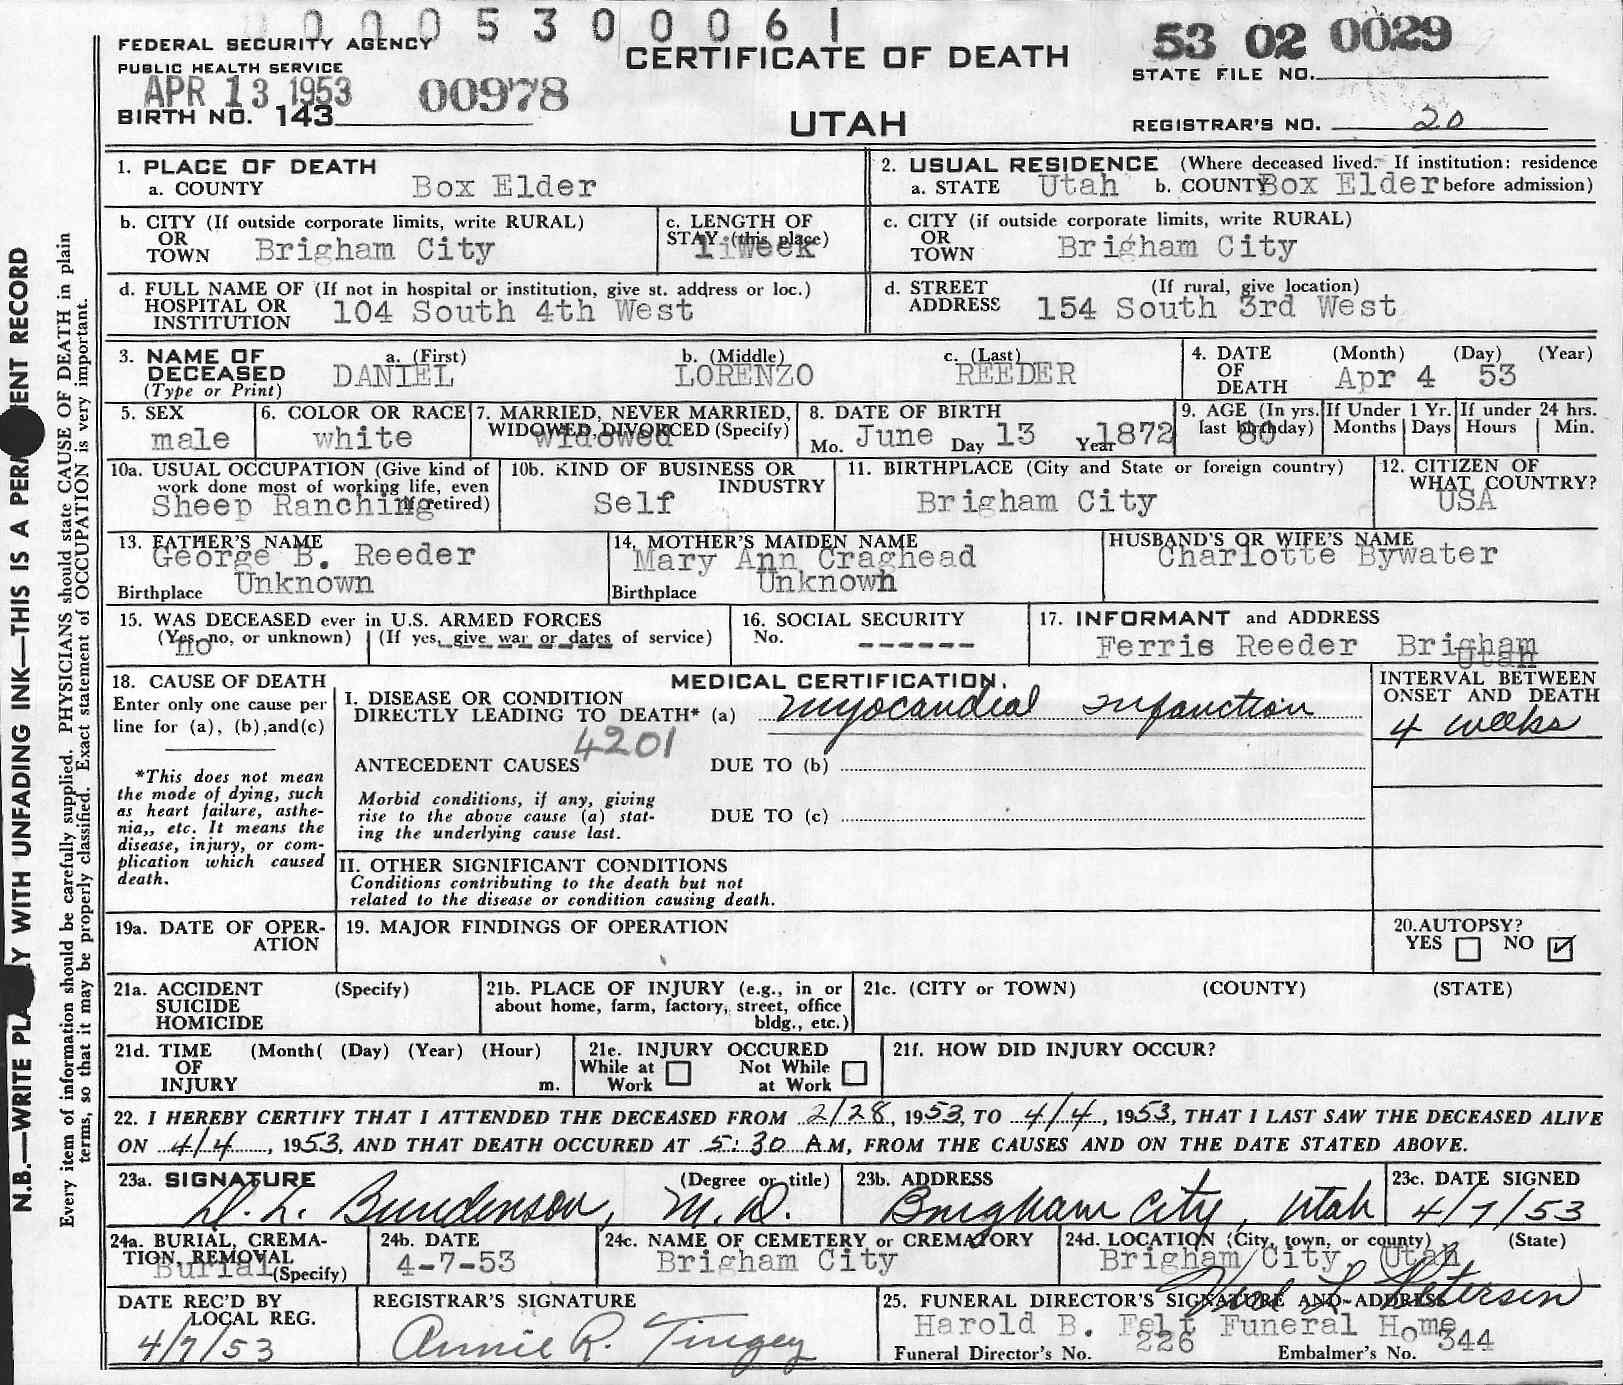 000530061
53 02 0029
FEDERAL SECURITY AGENCY
PUBLIC HEALTH SERVICE
CERTIFICATE OF DEATH
STATE FILE NO.
APR 13 1953 00978
BIRTH NO. 143
UTAH
REGISTRAR'S NO. 20
1. PLACE OF DEATH
a. COUNTY Box Elder
2. USUAL RESIDENCE (Where deceased lived. If institution: residence
a. STATE Utah b. COUNTY Box Elder before admission)
b. CITY (If outside corporate limits, write RURAL)
OR
TOWN Brigham City
c. LENGTH OF
STAY (this place)
1 Week
c. CITY (if outside corporate limits, write RURAL)
OR
TOWN Brigham City
d. FULL NAME OF (If not in hospital or institution, give st. address or loc.)
HOSPITAL OR
INSTITUTION 104 South 4th West
d. STREET (If rural, give location)
ADDRESS 154 South 3rd West
3. NAME OF DECEASED
(Type or Print)
a. (First) b. (Middle) c. (Last)
DANIEL LORENZO REEDER
4. DATE OF DEATH (Month) (Day) (Year)
Apr 4 53
5. SEX
male
6. COLOR OR RACE
white
7. MARRIED, NEVER MARRIED,
WIDOWED DIVORCED (Specify)
widowed
8. DATE OF BIRTH
Mo. June Day 13 Year 1872
9. AGE (In yrs. last birthday)
80
If Under 1 Yr.
Months Days
If under 24 hrs.
Hours Min.
10a. USUAL OCCUPATION (Give kind of
work done most of working life, even
if retired)
Sheep Ranching
10b. KIND OF BUSINESS OR
INDUSTRY
Self
11. BIRTHPLACE (City and State or foreign country)
Brigham City
12. CITIZEN OF
WHAT COUNTRY?
USA
13. FATHER'S NAME
George B. Reeder
Birthplace Unknown
14. MOTHER'S MAIDEN NAME
Mary Ann Craghead
Birthplace Unknown
HUSBAND'S OR WIFE'S NAME
Charlotte Bywater
15. WAS DECEASED ever in U.S. ARMED FORCES
(Yes, no, or unknown) (If yes, give war or dates of service)
no
16. SOCIAL SECURITY
No. ------
17. INFORMANT and ADDRESS
Ferris Reeder Brigham
Utah
18. CAUSE OF DEATH
Enter only one cause per
line for (a), (b),and(c)
*This does not mean
the mode of dying, such
as heart failure, asthe-
nia,, etc. It means the
disease, injury, or com-
plication which caused
death.
MEDICAL CERTIFICATION.
I. DISEASE OR CONDITION
DIRECTLY LEADING TO DEATH* (a) Myocardial Infarction
4201
ANTECEDENT CAUSES DUE TO (b)
Morbid conditions, if any, giving
rise to the above cause (a) stat-
ing the underlying cause last.
DUE TO (c)
II. OTHER SIGNIFICANT CONDITIONS
Conditions contributing to the death but not
related to the disease or condition causing death.
INTERVAL BETWEEN
ONSET AND DEATH
4 weeks
19a. DATE OF OPER-
ATION
19. MAJOR FINDINGS OF OPERATION
20.AUTOPSY?
YES NO
21a. ACCIDENT (Specify)
SUICIDE
HOMICIDE
21b. PLACE OF INJURY (e.g., in or
about home, farm, factory, street, office
bldg., etc.)
21c. (CITY or TOWN) (COUNTY) (STATE)
21d. TIME (Month( (Day) (Year) (Hour)
OF
INJURY m.
21e. INJURY OCCURED
While at Work Not While at Work
21f. HOW DID INJURY OCCUR?
22. I HEREBY CERTIFY THAT I ATTENDED THE DECEASED FROM 2/28, 1953, TO 4/4, 1953, THAT I LAST SAW THE DECEASED ALIVE
ON 4/4, 1953, AND THAT DEATH OCCURED AT 5:30 A M, FROM THE CAUSES AND ON THE DATE STATED ABOVE.
23a. SIGNATURE (Degree or title)
Bunderson, M.D.
23b. ADDRESS
Brigham City, Utah
23c. DATE SIGNED
4/7/53
24a. BURIAL, CREMA-
TION, REMOVAL
(Specify)
Burial
24b. DATE
4-7-53
24c. NAME OF CEMETERY or CREMATORY
Brigham City
24d. LOCATION (City, town, or county) (State)
Brigham City, Utah
DATE REC'D BY
LOCAL REG.
4/7/53
REGISTRAR'S SIGNATURE
Annie R. Tingey
25. FUNERAL DIRECTOR'S SIGNATURE AND ADDRESS
Petersen
Harold B. Felt Funeral Home
Funeral Director's No. 226 Embalmer's No. 344
N.B.—WRITE PLAINLY WITH UNFADING INK—THIS IS A PERMANENT RECORD
Every item of information should be carefully supplied. PHYSICIANS should state CAUSE OF DEATH in plain
terms, so that it may be properly classified. Exact statement of OCCUPATION is very important.